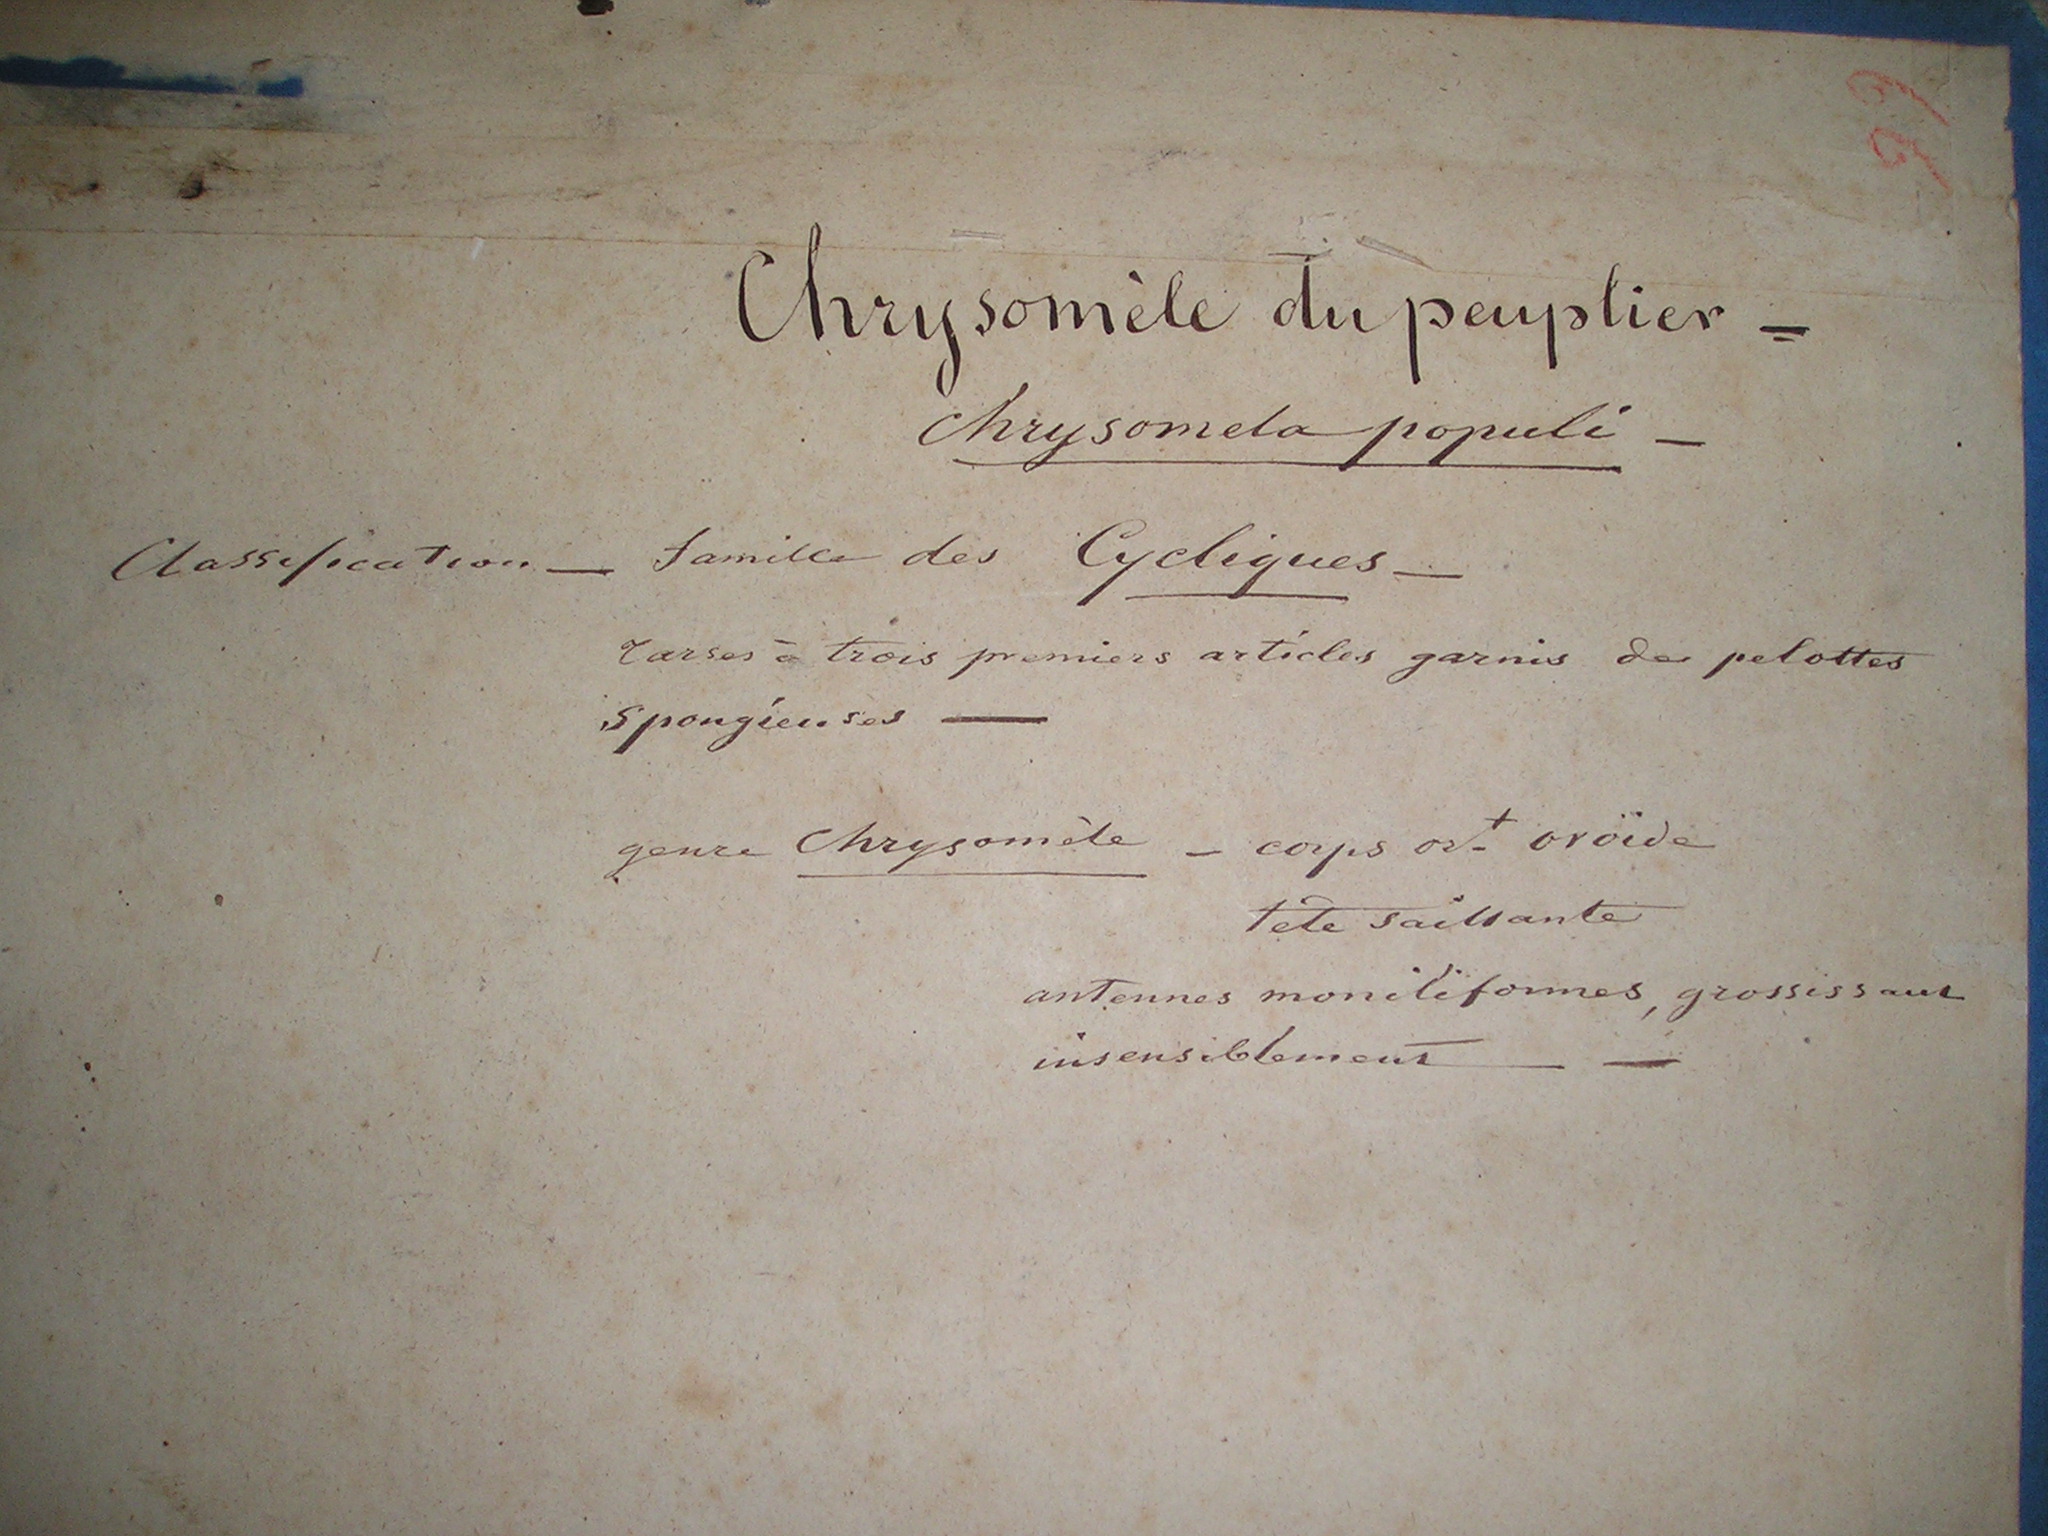 Chrysomèle du peuplier =
Chrysomela populi -
Classification - famille des Cycliques -
Tarses à trois premiers articles garnis de pelottes
spongieuses -
genre Chrysomèle - corps ovoïde
tête saillante
antennes moniliformes, grossissant
insensiblement -